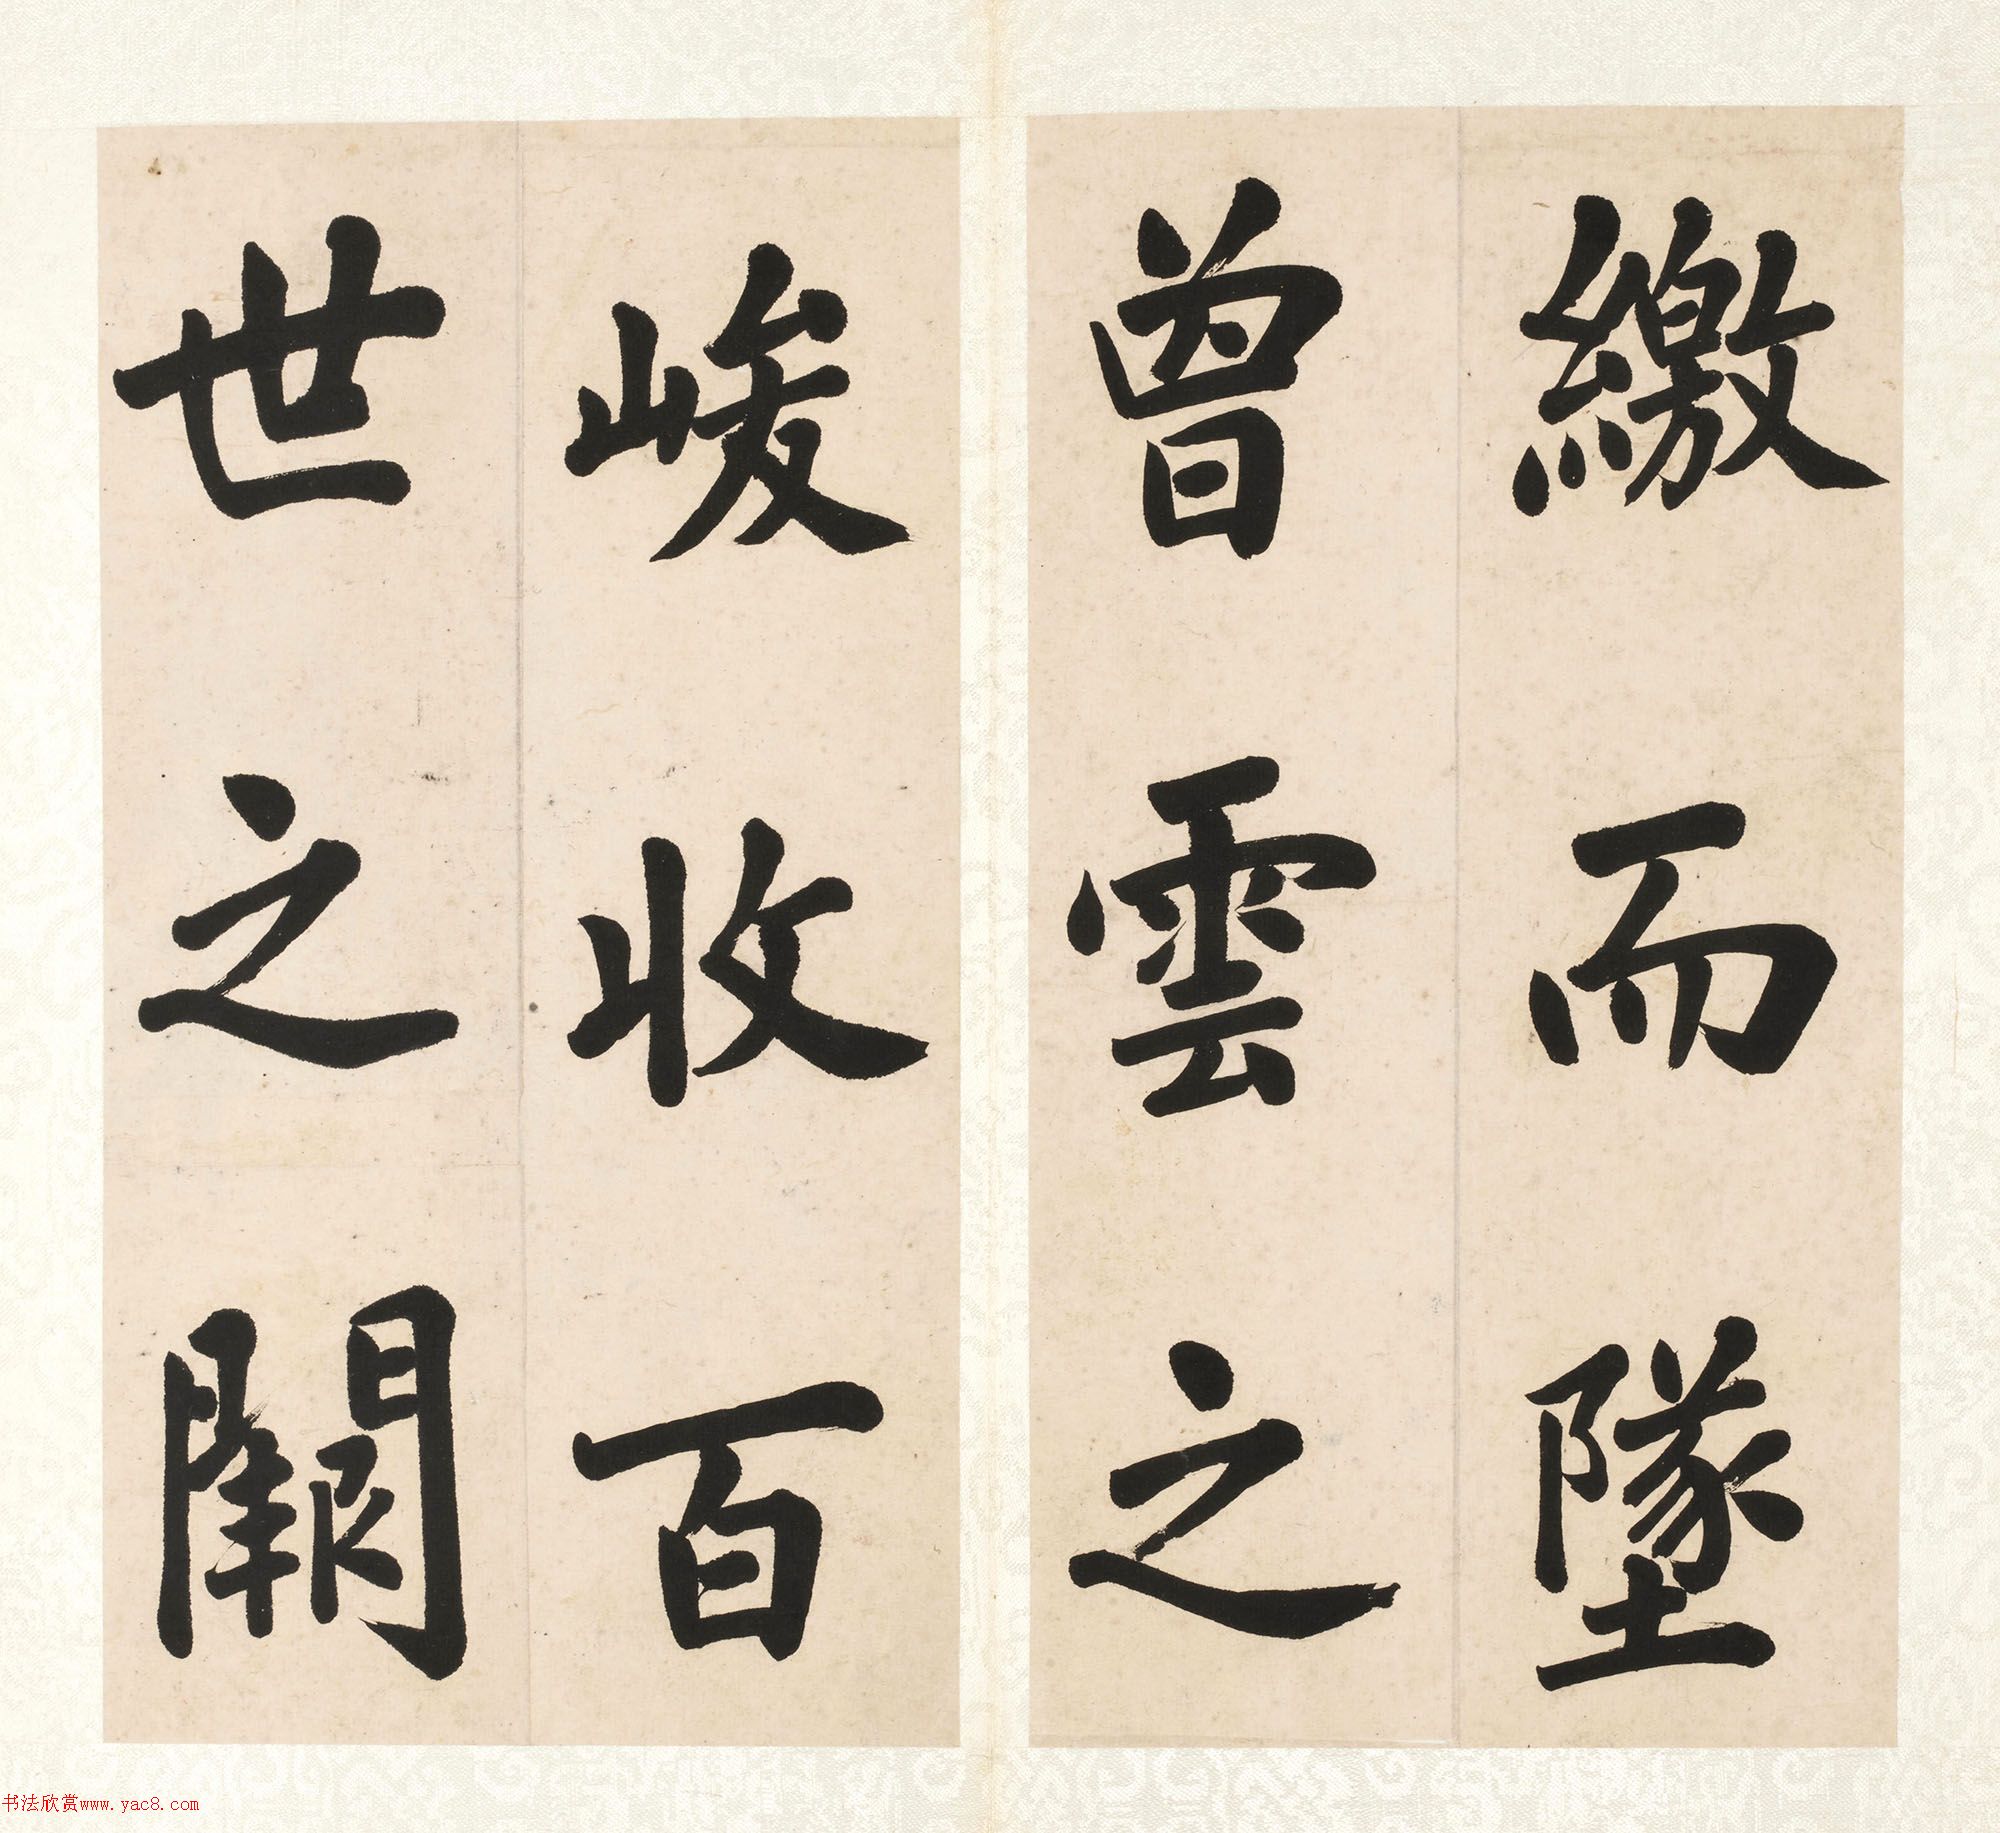 繳而墜
曾雲之
峻收百
世之闕
书法欣赏www.yac8.com